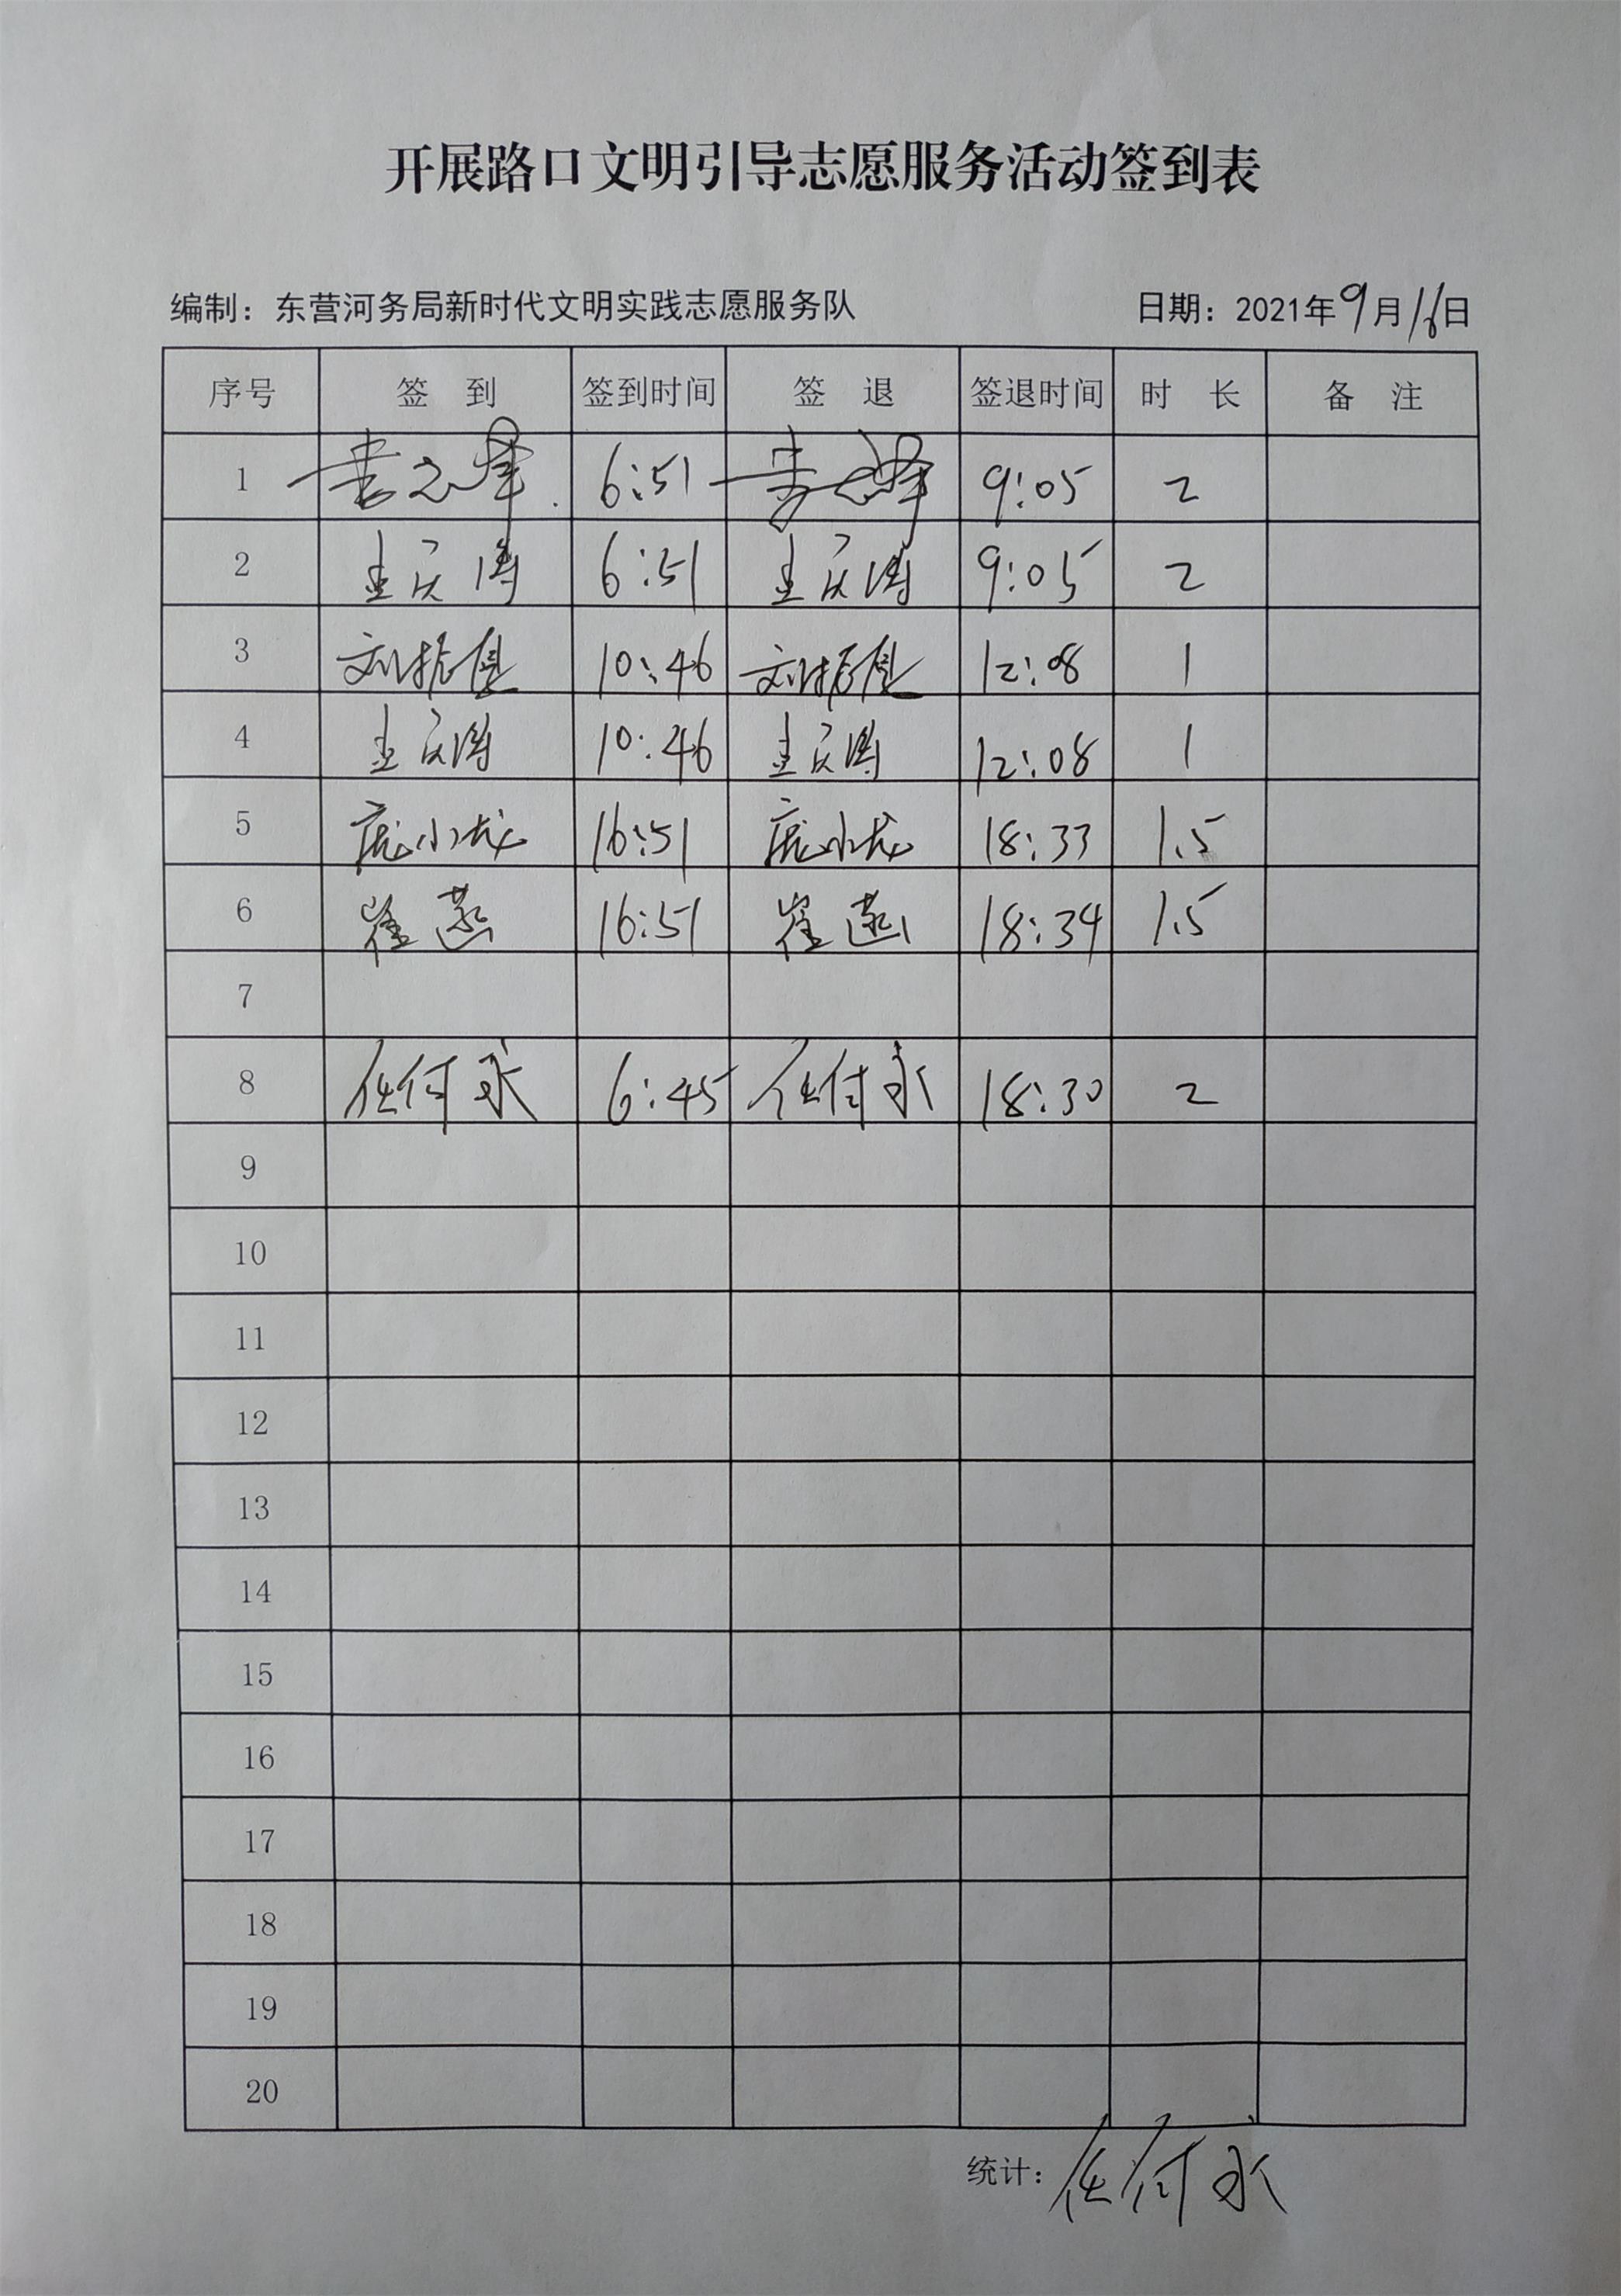 开展路口文明引导志愿服务活动签到表
编制：东营河务局新时代文明实践志愿服务队 日期：2021年9月16日
序号 签到 签到时间 签退 签退时间 时长 备注
1 6:51 9:05 2
2 6:51 9:05 2
3 刘振 10:46 刘振 12:08 1
4 10:46 12:08 1
5 庞小龙 16:51 庞小龙 18:33 1.5
6 崔燕 16:51 崔燕 18:34 1.5
7
8 任付永 6:45 任付永 18:30 2
9
10
11
12
13
14
15
16
17
18
19
20
统计：任付永